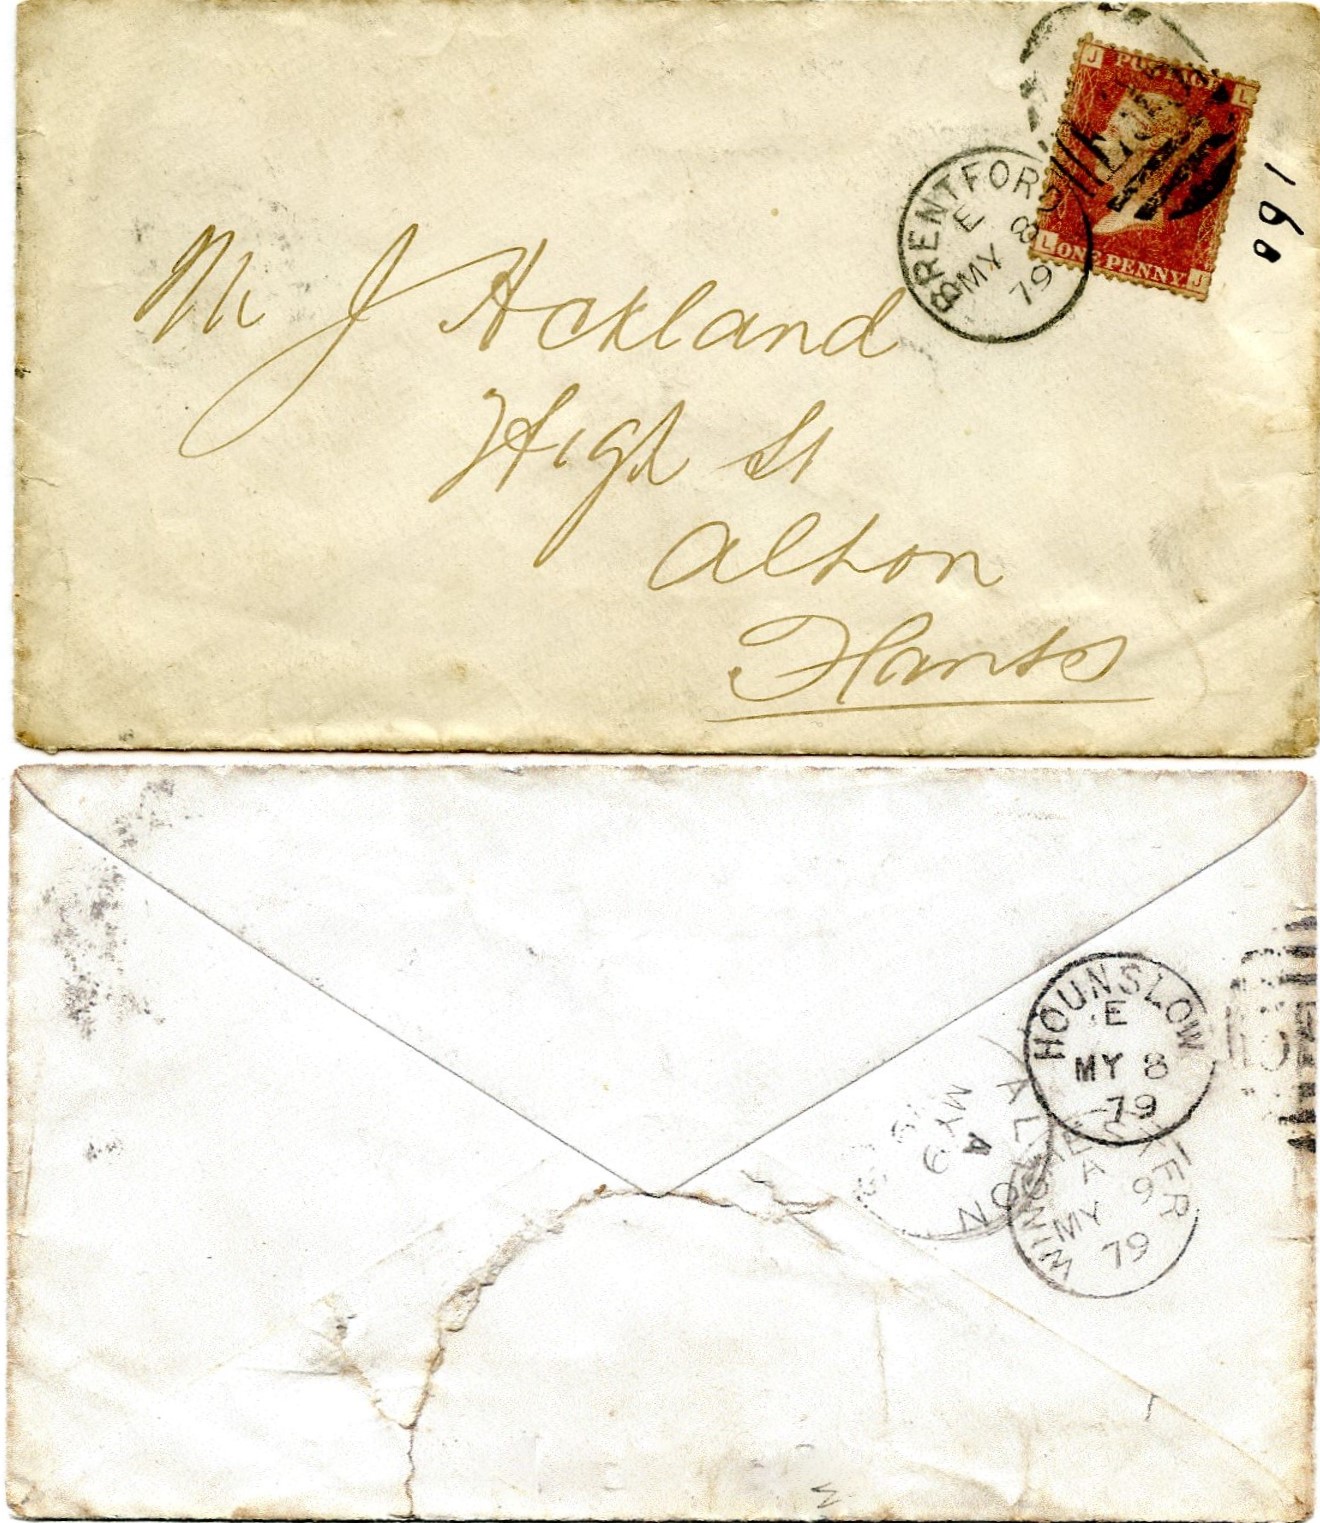 J POSTAGE L
L ONE PENNY J
160
BRENTFORD
E
MY 8
79
Mr J Ackland
High St
Alton
Hants
HOUNSLOW
E
MY 8
79
ALTON
A
MY 9
WINCHESTER
A
MY 9
79